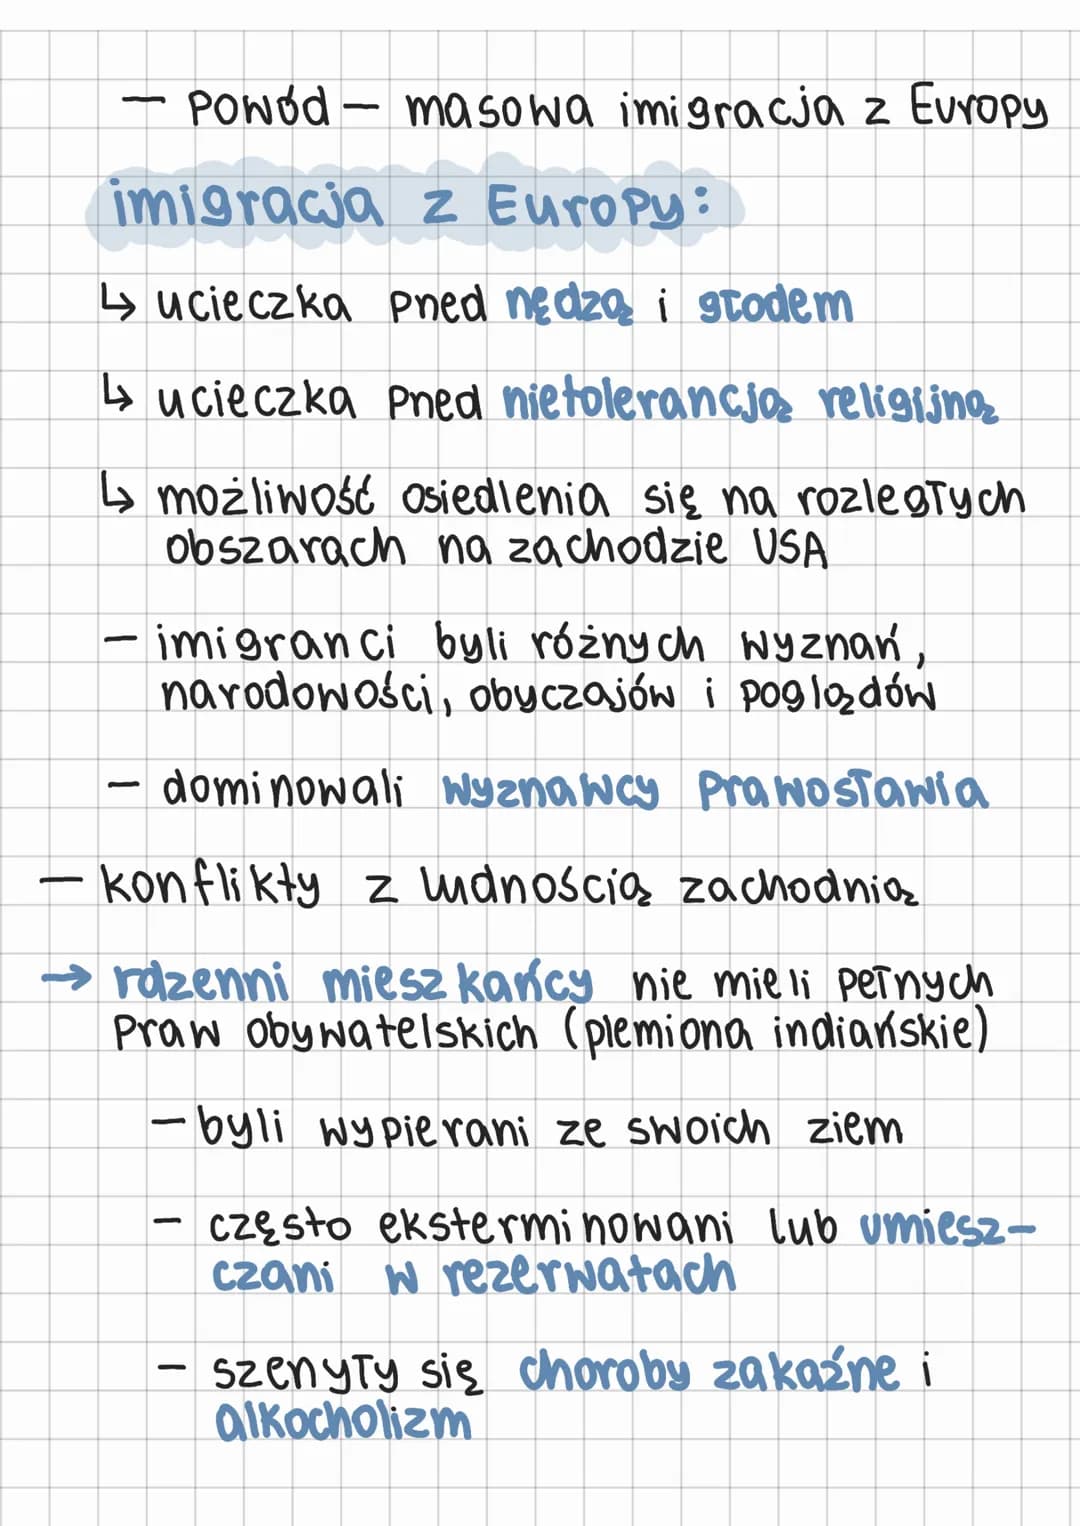 — Powód — masowa imigracja z Europy
imigracja z Europy:
↳ ucieczka przed nędzą i głodem
↳ ucieczka przed nietolerancją religijną
↳ możliwość osiedlenia się na rozległych
obszarach na zachodzie USA
— imigranci byli różnych wyznań,
narodowości, obyczajów i poglądów
— dominowali wyznawcy Prawosławia
— konflikty z ludnością zachodnią
→ rdzenni mieszkańcy nie mieli pełnych
praw obywatelskich (plemiona indiańskie)
— byli wypierani ze swoich ziem
— często eksterminowani lub umiesz-
czani w rezerwatach
— szerzyły się choroby zakaźne i
alkocholizm